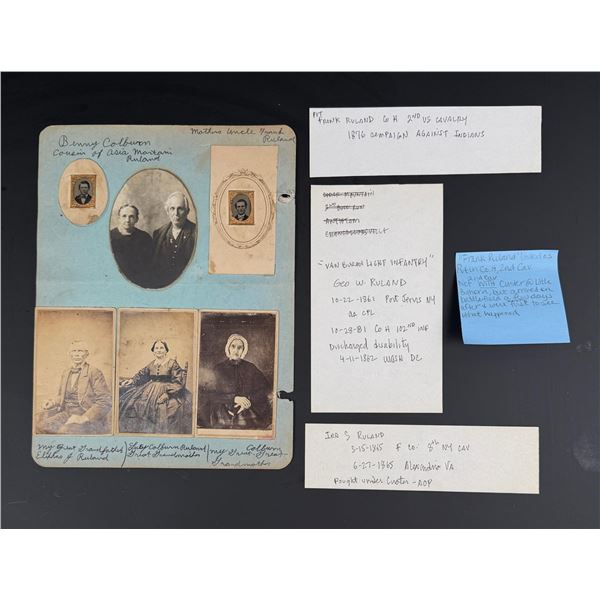 Benny Colburn
Cousin of Asia
Ruland
Mothers Uncle Frank
Ruland
My Great Grandfather
J Ruland
Colburn Ruland
Great Grandmother
Colburn
My Great-Great-
Grandmother
PVT
FRANK RULAND Co H 2ND US CAVALRY
1876 CAMPAIGN AGAINST INDIANS
2nd BULL RUN
ANTIETAM
"VAN BUREN LIGHT INFANTRY"
GEO W. RULAND
10-22-1861 Port Jervis NY
as CPL
10-28-81 Co H 102ND INF
Discharged disability
4-11-1862 WASH DC
IRA S RULAND
3-15-1865 F Co. 8th NY CAV
6-27-1865 Alexandria VA
Fought under Custer - AOP
"Frank Ruland"
Pvt in Co. H, 2nd Cav
Not with Custer @ Little
Bighorn, but arrived on
battlefield a few days
after & were first to see
what happened